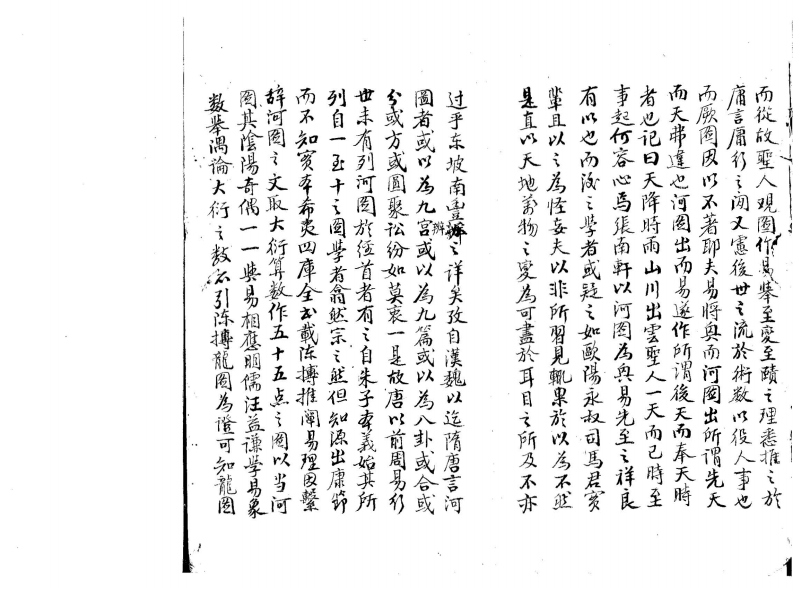 而從故聖人观圖作易举至変至賾之理悉推之於
庸言庸行之间又憲後世之流於術数以役人事也
而厥圖因以不著耶夫易将興而河圖出所謂先天
而天弗違也河圖出而易遂作所謂後天而奉天時
者也记曰天降時雨山川出雲聖人一天而已時至
事起何容心焉張南軒以河圖為興易先至之祥良
有以也而後之學者或疑之如歐陽永叔司馬君實
輩且以之為怪妄夫以非所習見輒果於以為不然
是直以天地萬物之变為可盡於耳目之所及不亦
过乎东坡南豊辨之详矣攷自漢魏以迄隋唐言河
圖者或以為九宮或以為九篇或以為八卦或合或
分或方或圓聚訟纷如莫衷一是故唐以前周易行
世未有列河圖於經首者有之自朱子本義始其所
列自一至十之圖學者翕然宗之然但知源出康節
而不知實本希夷四庫全书載陈摶推阐易理因繫
辞河圖之文取大衍算数作五十五点之圖以当河
圖其陰陽奇偶一一與易相應明儒汪益谦學易象
数举隅論大衍之数亦引陈摶龍圖為證可知龍圖